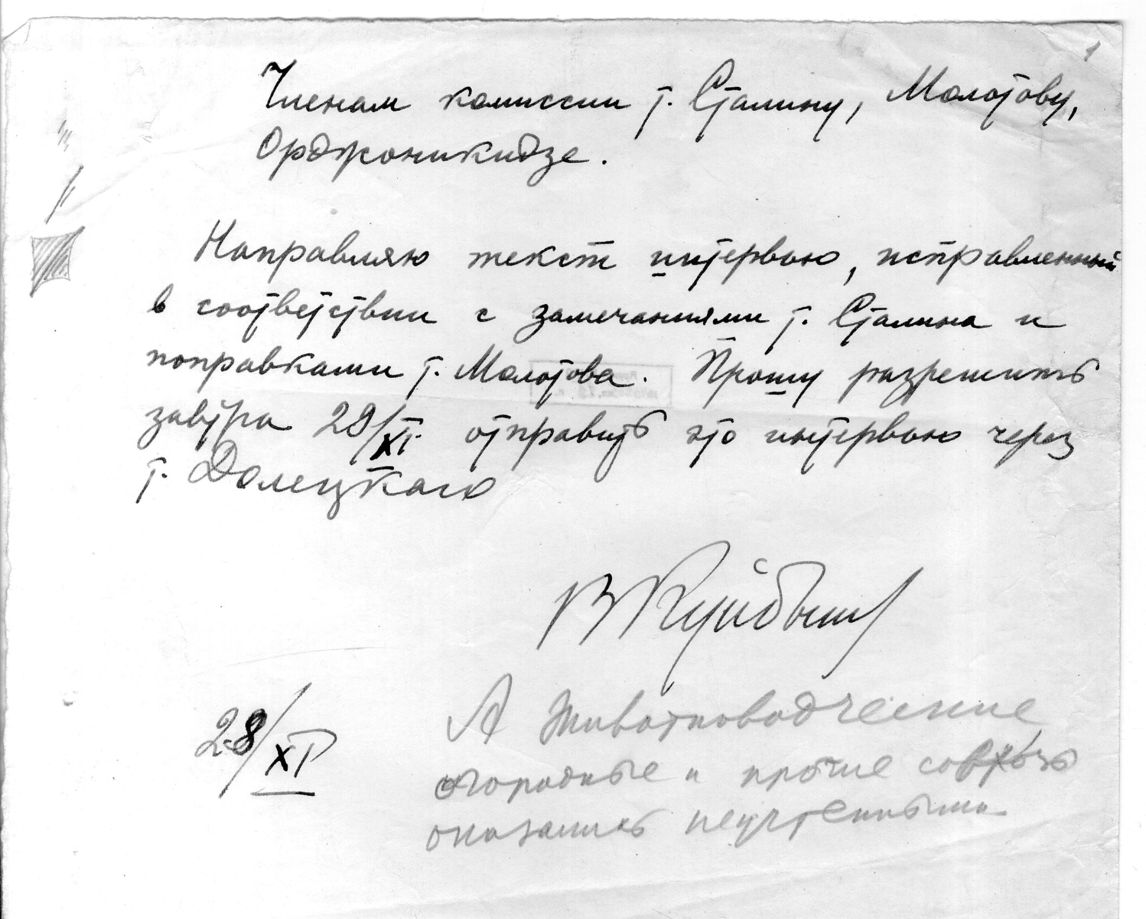 1
Членам комиссии т. Сталину, Молотову,
Орджоникидзе.
Направляю текст интервью, исправленный
в соответствии с замечаниями т. Сталина и
поправками т. Молотова. Прошу разрешить
завтра 29/XI отправить это интервью через
т. Долецкаго
В Куйбыш
28/XI
А животноводческие
огородные и прочие совхозы
оказались неучтенными